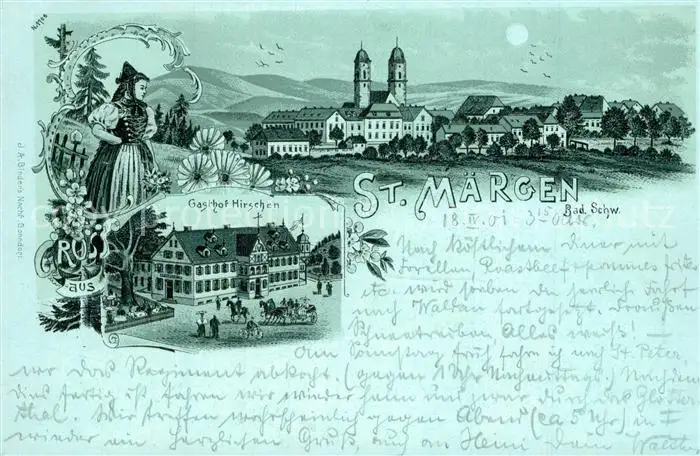 No 1704
ST. MÄRGEN
Bad. Schw.
Gasthof Hirschen
GRUSS
AUS
J. A. Binder's Nachf. Bonndorf.
18. IV. 01. 3 15
Nach köstlichem Diner mit
Forellen, Roastbeef pommes frites
etc. wird soeben die herrliche Fahrt
nach Waldau fortgesetzt. Draußen
Schneetreiben, Alles weiß! —
Am Samstag früh, fahre ich nach St. Peter
wo das Regiment abkocht. (gegen 1 Uhr Nachmittags.) Nachdem
dies fertig ist, fahren wir wieder heim und zwar durch das Glotter-
thal. Wir treffen wahrscheinlich gegen Abend (ca 5 Uhr) in F
wieder ein herzlichen Gruß, auch an Heini Dein Walther